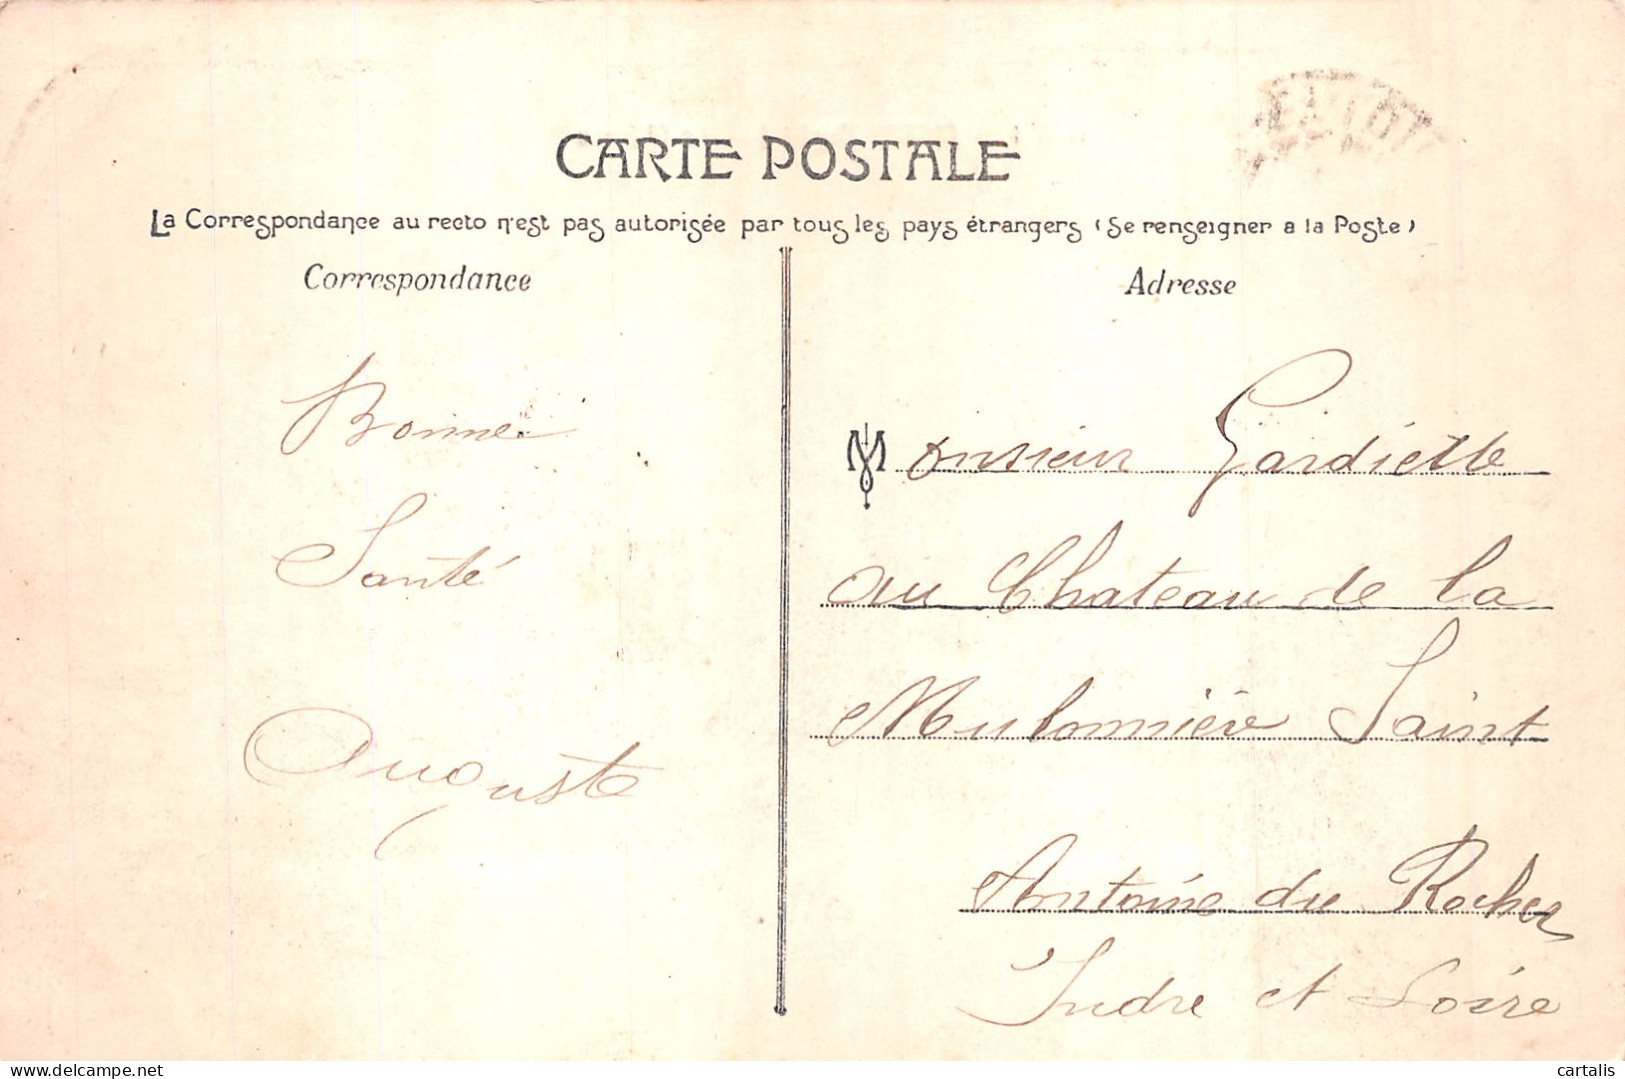 CARTE POSTALE
La Correspondance au recto n'est pas autorisée par tous les pays étrangers (Se renseigner a la Poste)
Correspondance
Bonne
Santé
Auguste
Adresse
Monsieur Gardiette
au Chateau de la
Mulonnière Saint
Antoine du Rocher
Indre et Loire
www.delcampe.net
cartalis